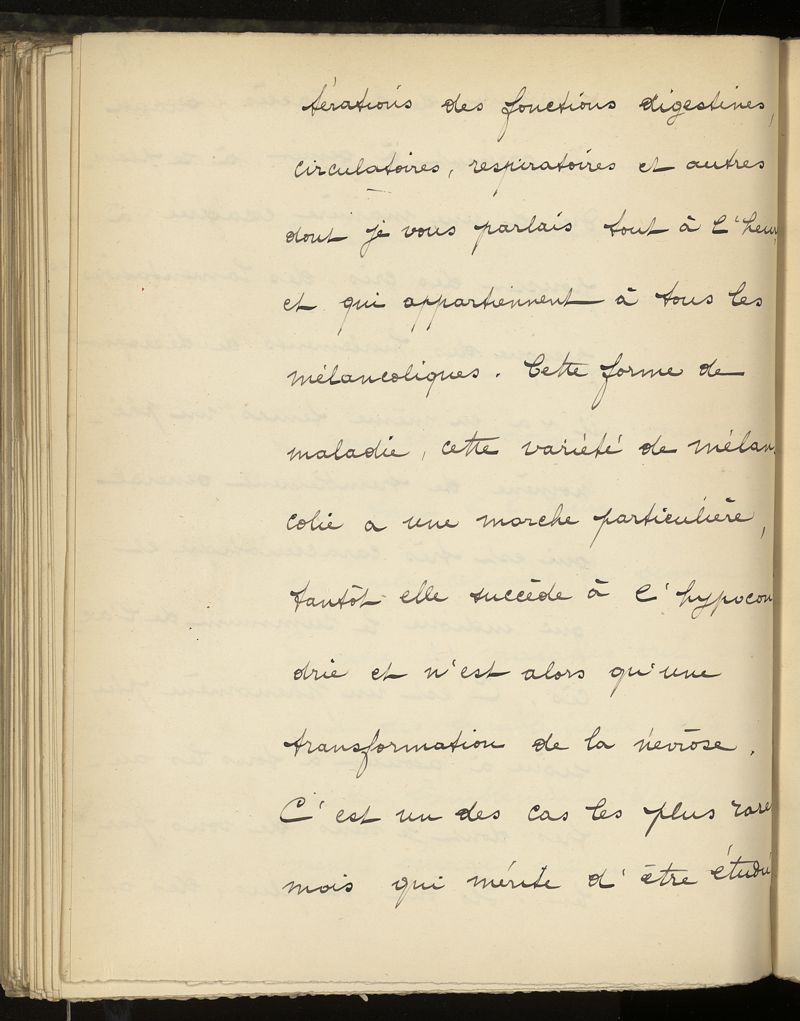 térations des fonctions digestives,
circulatoires, respiratoires et autres
dont je vous parlais tout à l'heu
et qui appartiennent à tous les
mélancoliques. Cette forme de
maladie, cette variété de mélan
colie a une marche particulière,
tantôt elle succède à l'hypocon
drie et n'est alors qu'une
transformation de la névrose.
C'est un des cas les plus rare
mais qui mérite d'être étudié